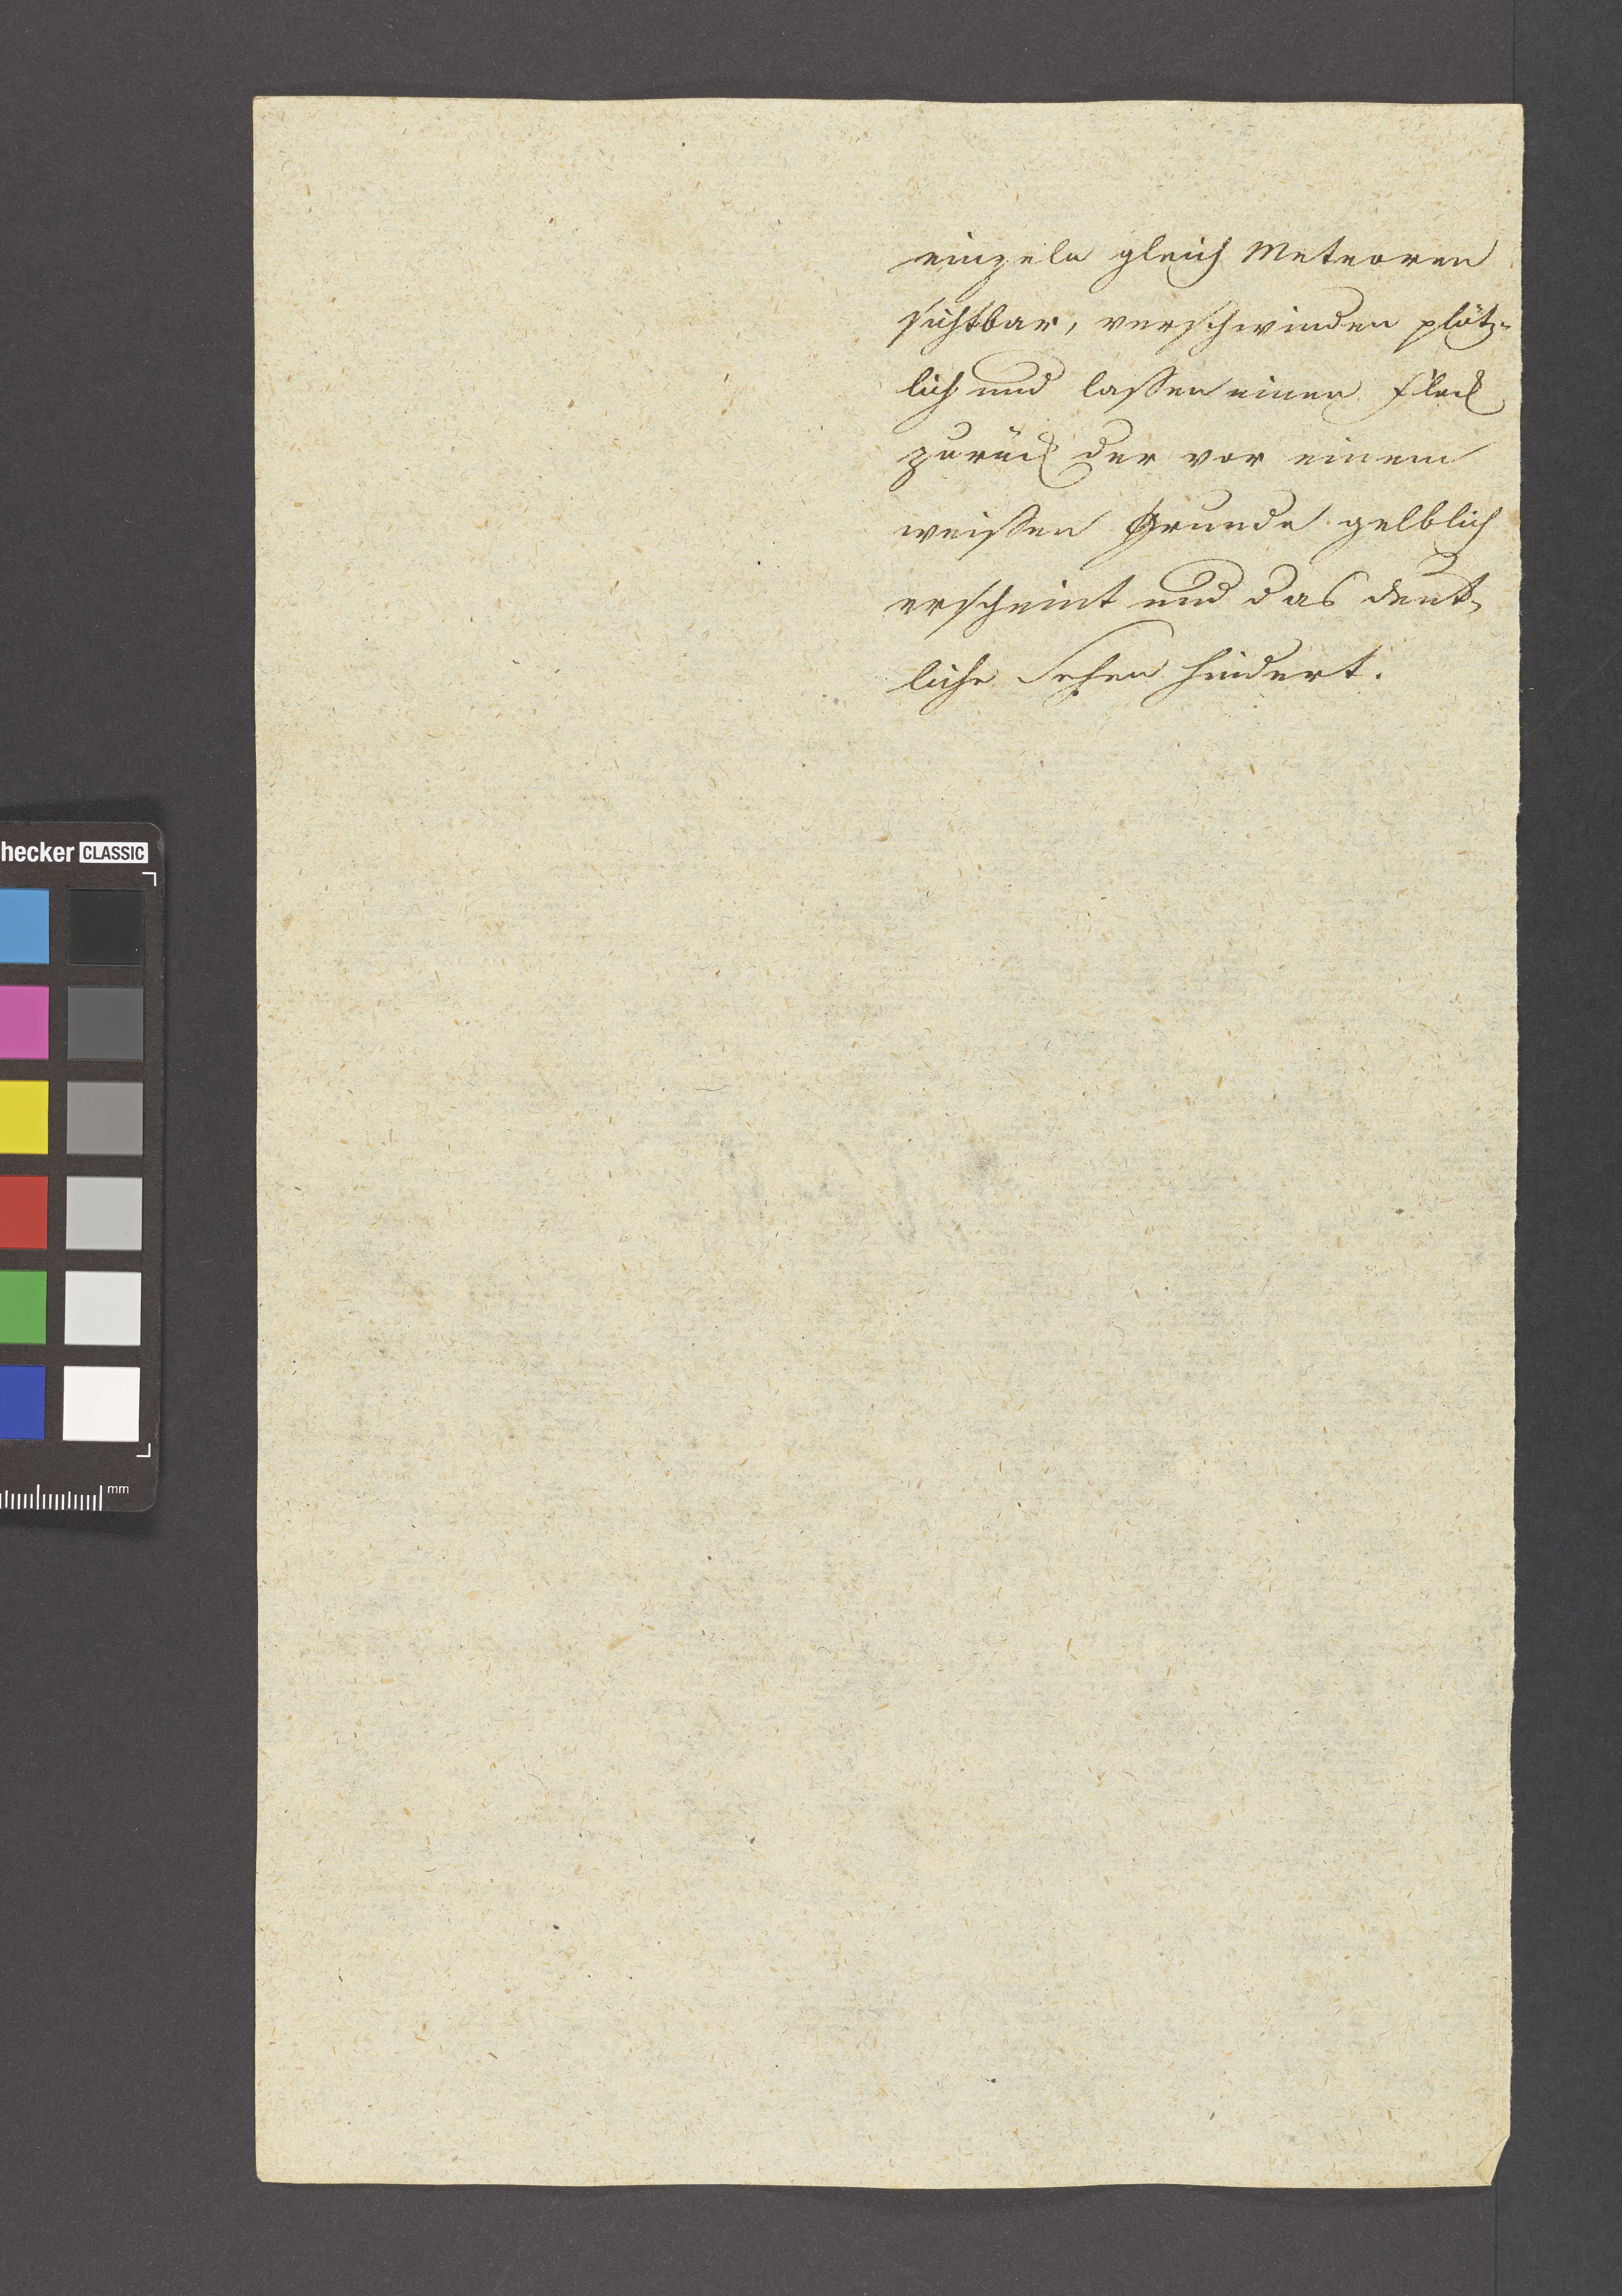 einzeln gleich Meteoren
sichtbar, verschwinden plötz-
lich und lassen einen Fleck
zurück der vor einem
weissen Grunde gelblich
erscheint und das deut-
liche Sehen hindert.
hecker CLASSIC
mm